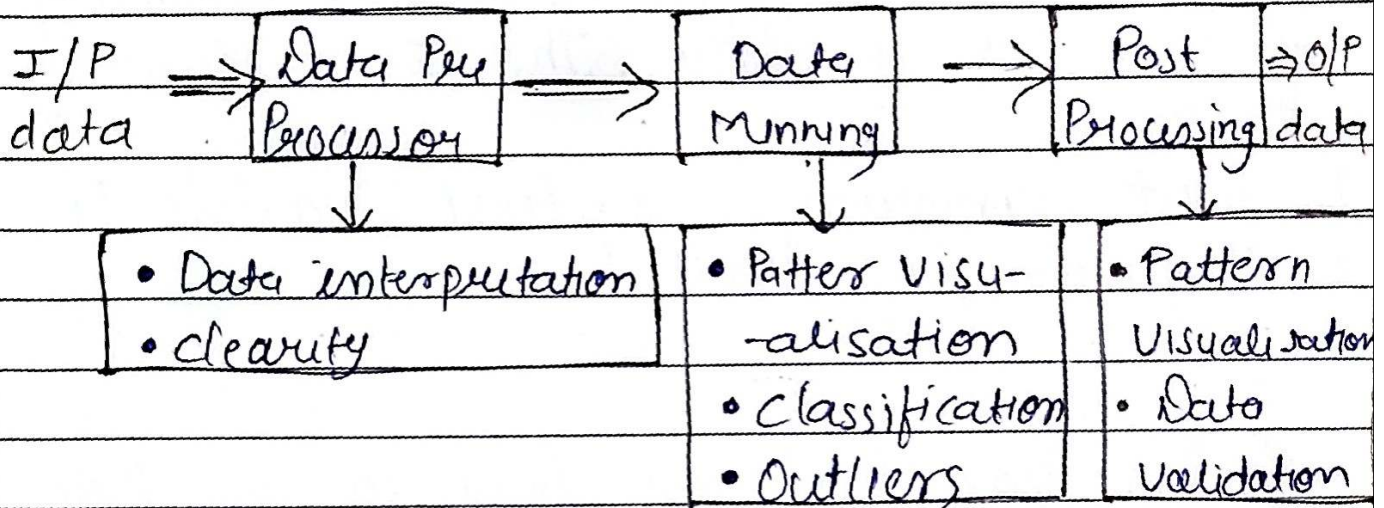 I/P
data
⇒
Data Pre
Processor
⇒
Data
Minning
⇒
Post
Processing
⇒ O/P
data
• Data interpretation
• clearity
• Patter Visu-
-alisation
• Classification
• Outliers
• Pattern
Visualisation
• Data
validation